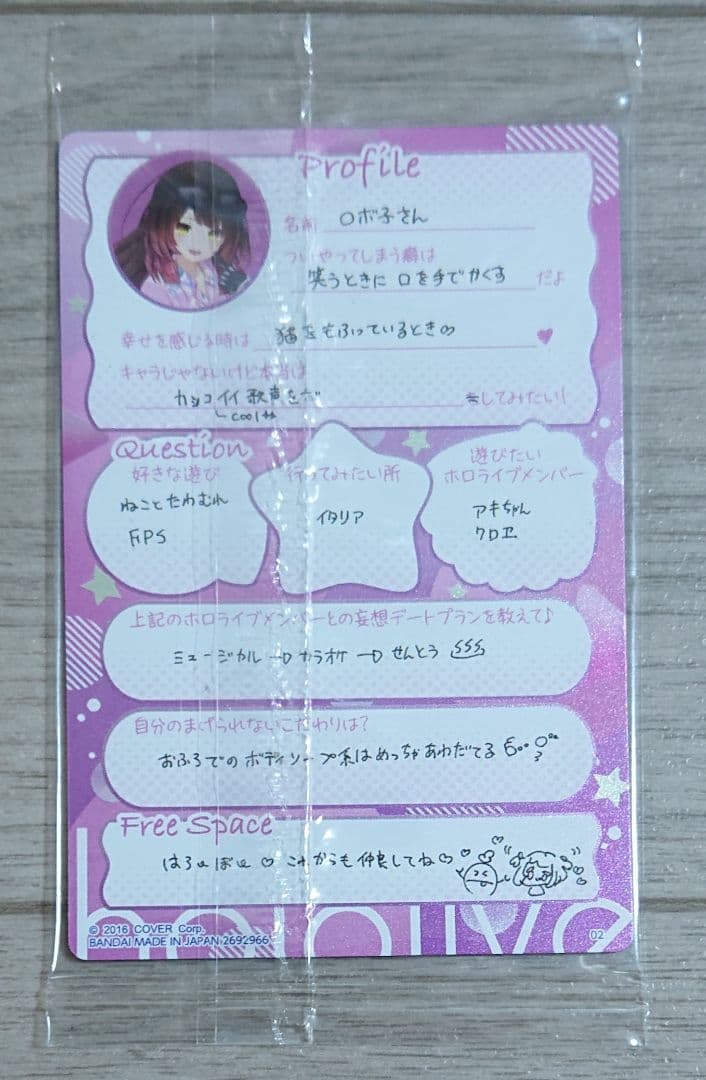 Profile
名前 ロボ子さん
ついやってしまう癖は
笑うときに口を手でかくす だよ
幸せを感じる時は 猫をもふっているときの
キャラじゃないけど本当は
カッコイイ歌声をだ をしてみたい!
cool
Question
好きな遊び
ねことたわむれ
FPS
行ってみたい所
イタリア
遊びたい
ホロライブメンバー
アキちゃん
クロヱ
上記のホロライブメンバーとの妄想デートプランを教えて♪
ミュージカル→カラオケ→せんとう
自分のまげられないこだわりは?
おふろでのボディソープ系はめっちゃあわだてる
Free Space
はろーぼー♡これからも仲良してね♡
hololive
© 2016 COVER Corp.
BANDAI MADE IN JAPAN 2692966
02